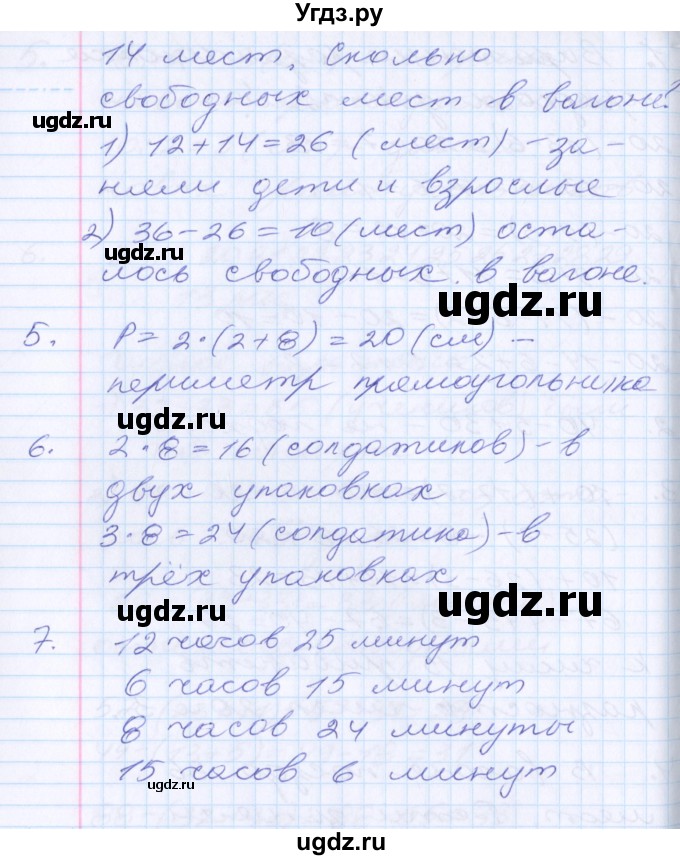 Угдз.ру
14 мест. Сколько
свободных мест в вагоне?
ugdz.ru
1) 12+14=26 (мест) - за-
няли дети и взрослые
2) 36-26=10 (мест) оста-
ugdz.ru
лось свободных в вагоне.
ugdz.ru
5. P= 2·(2+8)=20(см) -
периметр прямоугольника
ugdz.ru
6. 2·8=16 (солдатиков) - в
двух упаковках
3·8=24 (солдатика) - в
трёх упаковках
ugdz.ru
ugdz.ru
7. 12 часов 25 минут
6 часов 15 минут
8 часов 24 минуты
ugdz.ru
15 часов 6 минут
ugdz.ru